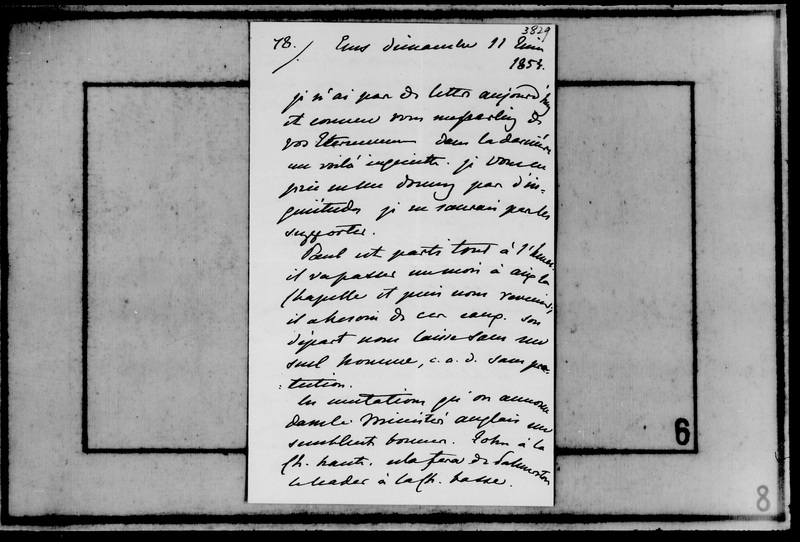 3829
78. / Ems dimanche 11 Juin
1854.
je n'ai pas de lettre aujourd'hui
et comme vous me parliez de
vos Eternuemens dans la dernière
me voilà inquiette. je vous en
prie ne me donnez pas d'in-
quiétudes je ne saurais pas les
supporter.
Paul est parti tout à l'heure.
il va passer un mois à aix la
Chapelle et puis nous revenir,
il a besoin de ces eaux. son
départ nous laisse sans un
seul homme, c. a. d. sans pro-
-tection.
les mutations qu'on annonce
dans le Ministère anglais me
semblent bonnes. John à la
Ch. haute. cela fera de Palmerston
le leader à la Ch. basse.
6
8